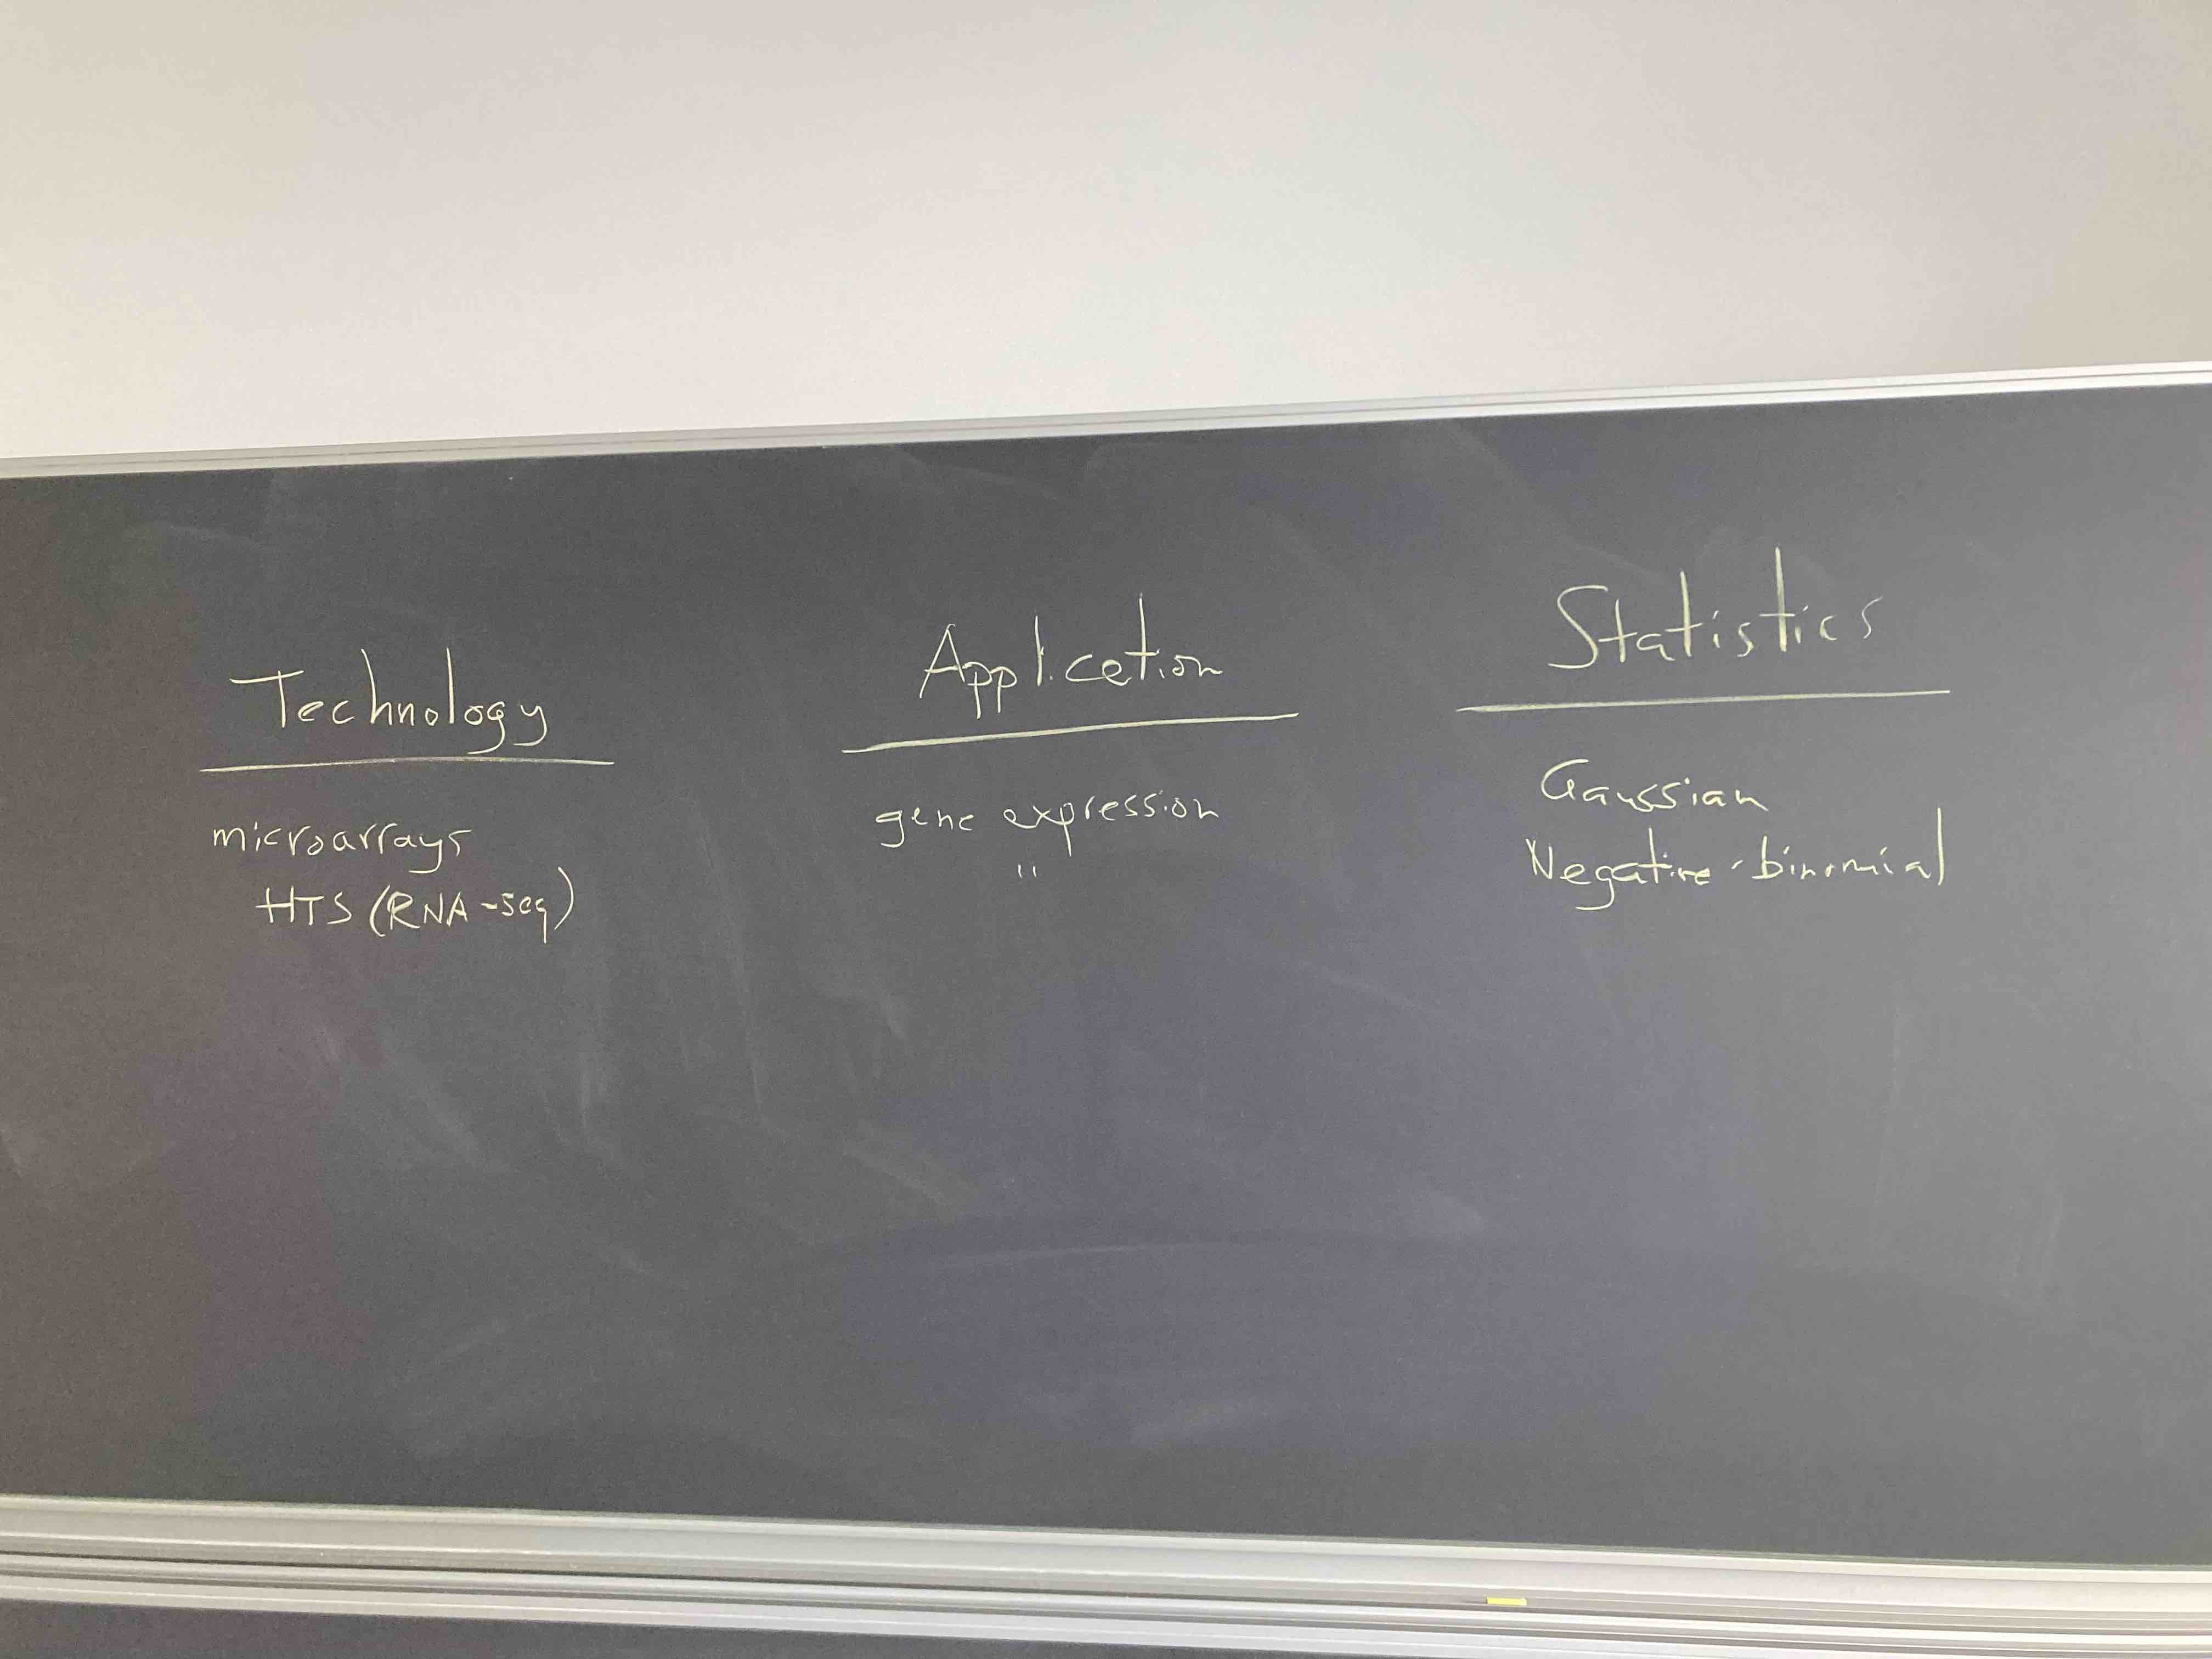 Technology Application Statistics
microarrays gene expression Gaussian
HTS (RNA-seq) " Negative-binomial